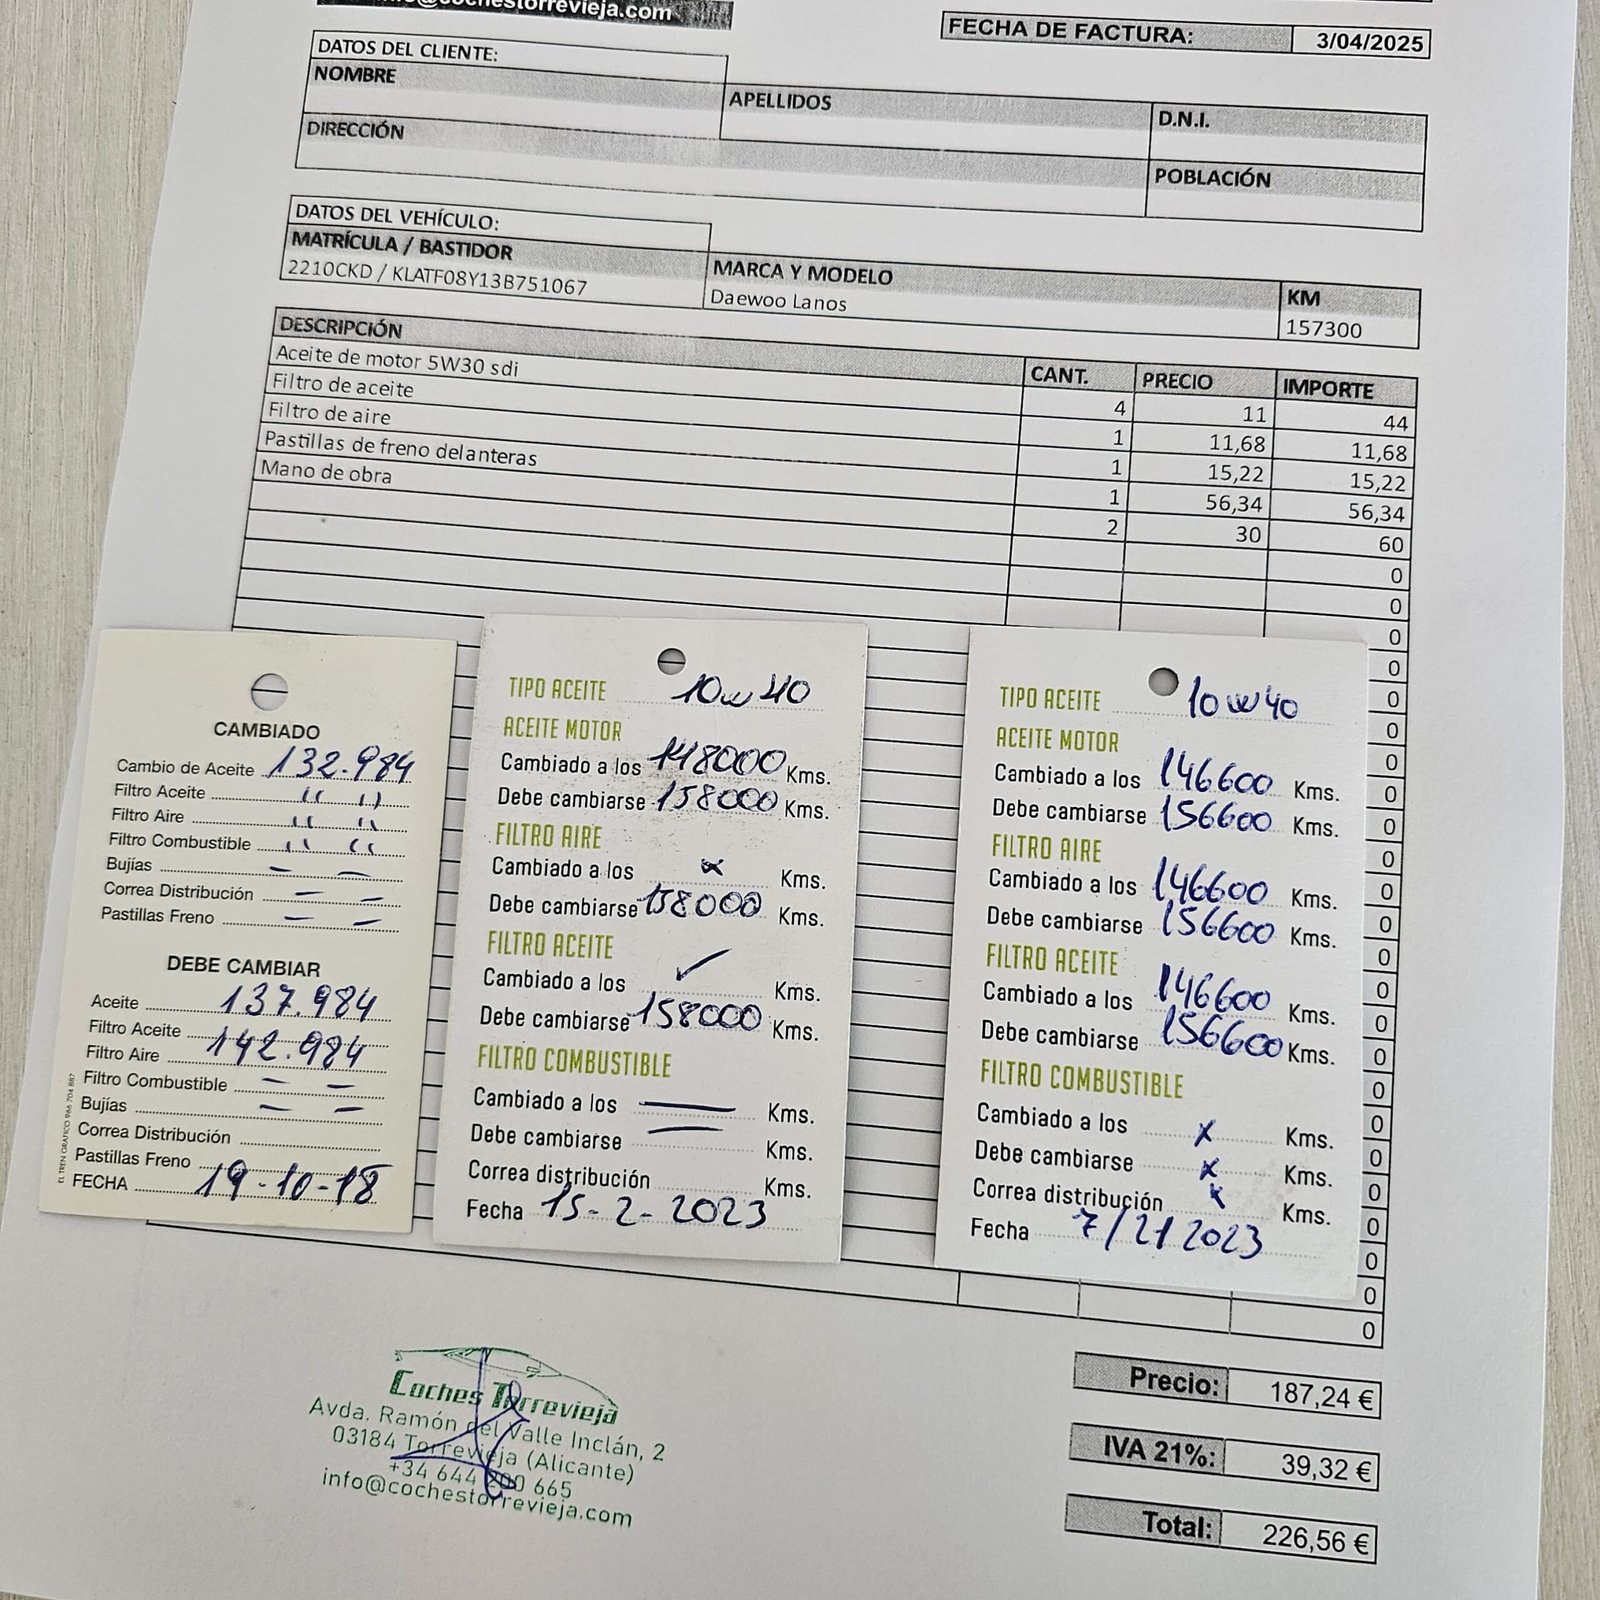 info@cochestorrevieja.com
FECHA DE FACTURA: 3/04/2025
DATOS DEL CLIENTE:
NOMBRE APELLIDOS D.N.I.
DIRECCIÓN POBLACIÓN
DATOS DEL VEHÍCULO:
MATRÍCULA / BASTIDOR MARCA Y MODELO KM
2210CKD / KLATF08Y13B751067 Daewoo Lanos 157300
DESCRIPCIÓN CANT. PRECIO IMPORTE
Aceite de motor 5W30 sdi 4 11 44
Filtro de aceite 1 11,68 11,68
Filtro de aire 1 15,22 15,22
Pastillas de freno delanteras 1 56,34 56,34
Mano de obra 2 30 60
0
0
0
0
0
0
0
0
0
0
0
0
0
0
0
0
0
0
0
0
0
0
0
0
CAMBIADO
Cambio de Aceite 132.984
Filtro Aceite " "
Filtro Aire " "
Filtro Combustible " "
Bujías - -
Correa Distribución - -
Pastillas Freno - -
DEBE CAMBIAR
Aceite 137.984
Filtro Aceite
Filtro Aire 142.984
Filtro Combustible - -
Bujías - -
Correa Distribución
Pastillas Freno
FECHA 19-10-18
EL TREN GRAFICO 966 704 887
TIPO ACEITE 10w40
ACEITE MOTOR
Cambiado a los 148000 Kms.
Debe cambiarse 158000 Kms.
FILTRO AIRE
Cambiado a los x Kms.
Debe cambiarse 158000 Kms.
FILTRO ACEITE
Cambiado a los ✓ Kms.
Debe cambiarse 158000 Kms.
FILTRO COMBUSTIBLE
Cambiado a los — Kms.
Debe cambiarse — Kms.
Correa distribución Kms.
Fecha 15-2-2023
TIPO ACEITE 10w40
ACEITE MOTOR
Cambiado a los 146600 Kms.
Debe cambiarse 156600 Kms.
FILTRO AIRE
Cambiado a los 146600 Kms.
Debe cambiarse 156600 Kms.
FILTRO ACEITE
Cambiado a los 146600 Kms.
Debe cambiarse 156600 Kms.
FILTRO COMBUSTIBLE
Cambiado a los x Kms.
Debe cambiarse x Kms.
Correa distribución x Kms.
Fecha 7/21 2023
Coches Torrevieja
Avda. Ramón del Valle Inclán, 2
03184 Torrevieja (Alicante)
+34 644 200 665
info@cochestorrevieja.com
Precio: 187,24 €
IVA 21%: 39,32 €
Total: 226,56 €